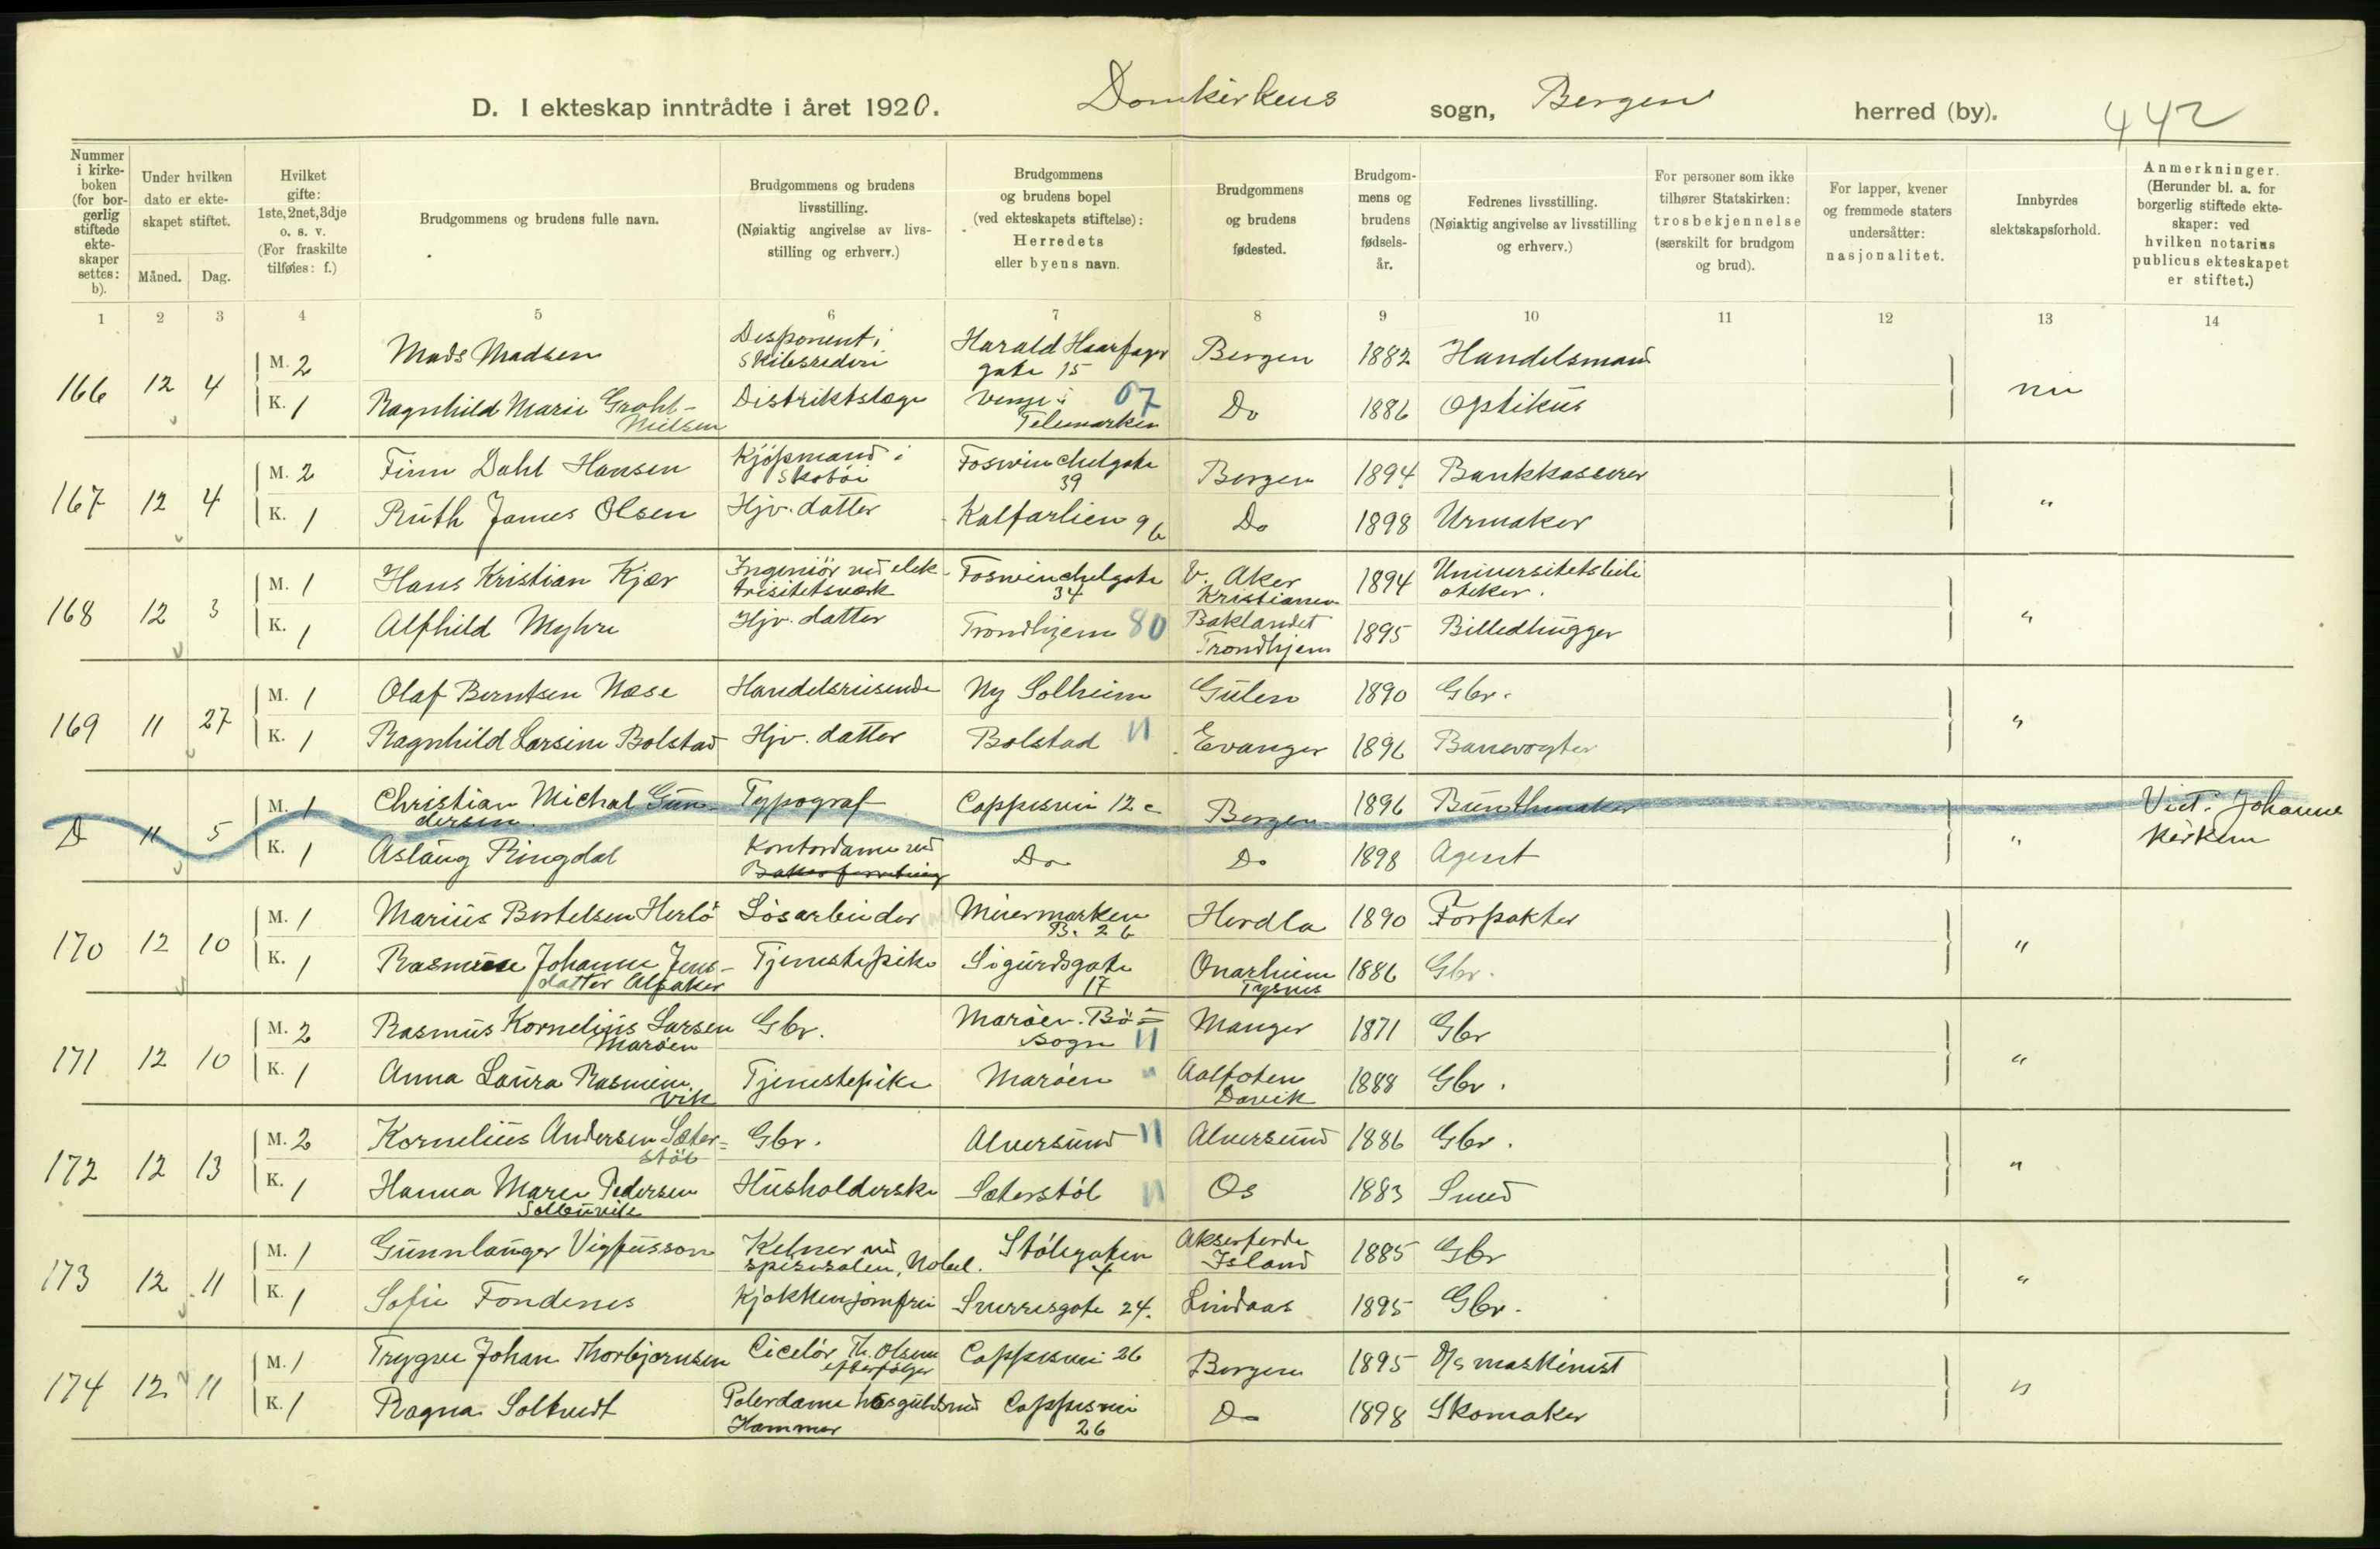 D. I ekteskap inntrådte i året 1920. Domkirkens sogn, Bergen herred (by). 442
Nummer i kirke-boken (for bor-gerlig stiftede ekte-skaper settes: b).
Under hvilken dato er ekte-skapet stiftet.
Måned. Dag.
Hvilket gifte: 1ste, 2net, 3dje o. s. v. (For fraskilte tilføies: f.)
Brudgommens og brudens fulle navn.
Brudgommens og brudens livsstilling. (Nøiaktig angivelse av livs-stilling og erhverv.)
Brudgommens og brudens bopel (ved ekteskapets stiftelse): Herredets eller byens navn.
Brudgommens og brudens fødested.
Brudgom-mens og brudens fødsels-år.
Fedrenes livsstilling. (Nøiaktig angivelse av livsstilling og erhverv.)
For personer som ikke tilhører Statskirken: trosbekjennelse (særskilt for brudgom og brud).
For lapper, kvener og fremmede staters undersåtter: nasjonalitet.
Innbyrdes slektskapsforhold.
Anmerkninger. (Herunder bl. a. for borgerlig stiftede ekte-skaper: ved hvilken notarius publicus ekteskapet er stiftet.)
1 2 3 4 5 6 7 8 9 10 11 12 13 14
166 12 4 M. 2 Mads Madsen Disponent i Skibsrederi Harald Haarfager gate 15 Bergen 1882 Handelsmand nei
K. 1 Ragnhild Marie Grohl-Nielsen Distriktslæge Vinje i Telemarken 07 Do 1886 Optikus
167 12 4 M. 2 Finn Dahl Hansen Kjöpmand i Skotöi Foswinckelgate 39 Bergen 1894 Bankkasserer "
K. 1 Ruth James Olsen Hjv. datter Kalfarlien 9 b Do 1898 Urmaker
168 12 3 M. 1 Hans Kristian Kjær Ingeniör ved elektrisitetsverk Foswinckelgate 34 V. Aker Kristiania 1894 Universitetsbiblioteker. "
K. 1 Alfhild Myhre Hjv. datter Trondhjem 80 Baklandet Trondhjem 1895 Billedhugger
169 11 27 M. 1 Olaf Berntsen Næse Handelsreisende Ny Solheim Gulen 1890 Gbr. "
K. 1 Ragnhild Larsine Bolstad Hjv. datter Bolstad 11 Evanger 1896 Banevogter
D 11 5 M. 1 Christian Michal Gundersen. Typograf Cappesvei 12 c Bergen 1896 Buntmaker " Viet i Johannes kirken
K. 1 Aslaug Ringdal Kontordame ved Bakerforretning Do Do 1898 Agent
170 12 10 M. 1 Marius Bertelsen Herlö Lösarbeider Meiermarken B. 26 Herdla 1890 Forpakter "
K. 1 Rasmine Johanne Jens-datter Alsaker Tjenestepike Sigurdsgate 17 Onarheim Tysnes 1886 Gbr.
171 12 10 M. 2 Rasmus Kornelius Larsen Maröen Gbr. Maröen. Bö = Sogn 11 Manger 1871 Gbr "
K. 1 Anna Laura Rasmine Vik Tjenestepike Maröen " Aalfoten Davik 1888 Gbr.
172 12 13 M. 2 Kornelius Andersen Sæter=stöl Gbr. Alversund 11 Alversund 1886 Gbr. "
K. 1 Hanna Maren Pedersen Solbuvik Husholderske Sæterstöl 11 Os 1883 Smed
173 12 11 M. 1 Gunnlauger Vigfusson Kelner ved spisesalen, Nobel. Stölegaten 4 Island 1885 Gbr "
K. 1 Sofie Fondenes Kjøkkenjomfru Sverresgate 24. Lindaas 1895 Gbr.
174 12 11 M. 1 Trygve Johan Thorbjørnsen Ciselör Th. Olsens efterfølger Cappesvei 26 Bergen 1895 D/s maskinist "
K. 1 Ragna Soltvedt Polerdame hos guldsmed Hammer Cappesvei 26 Do 1898 Skomaker